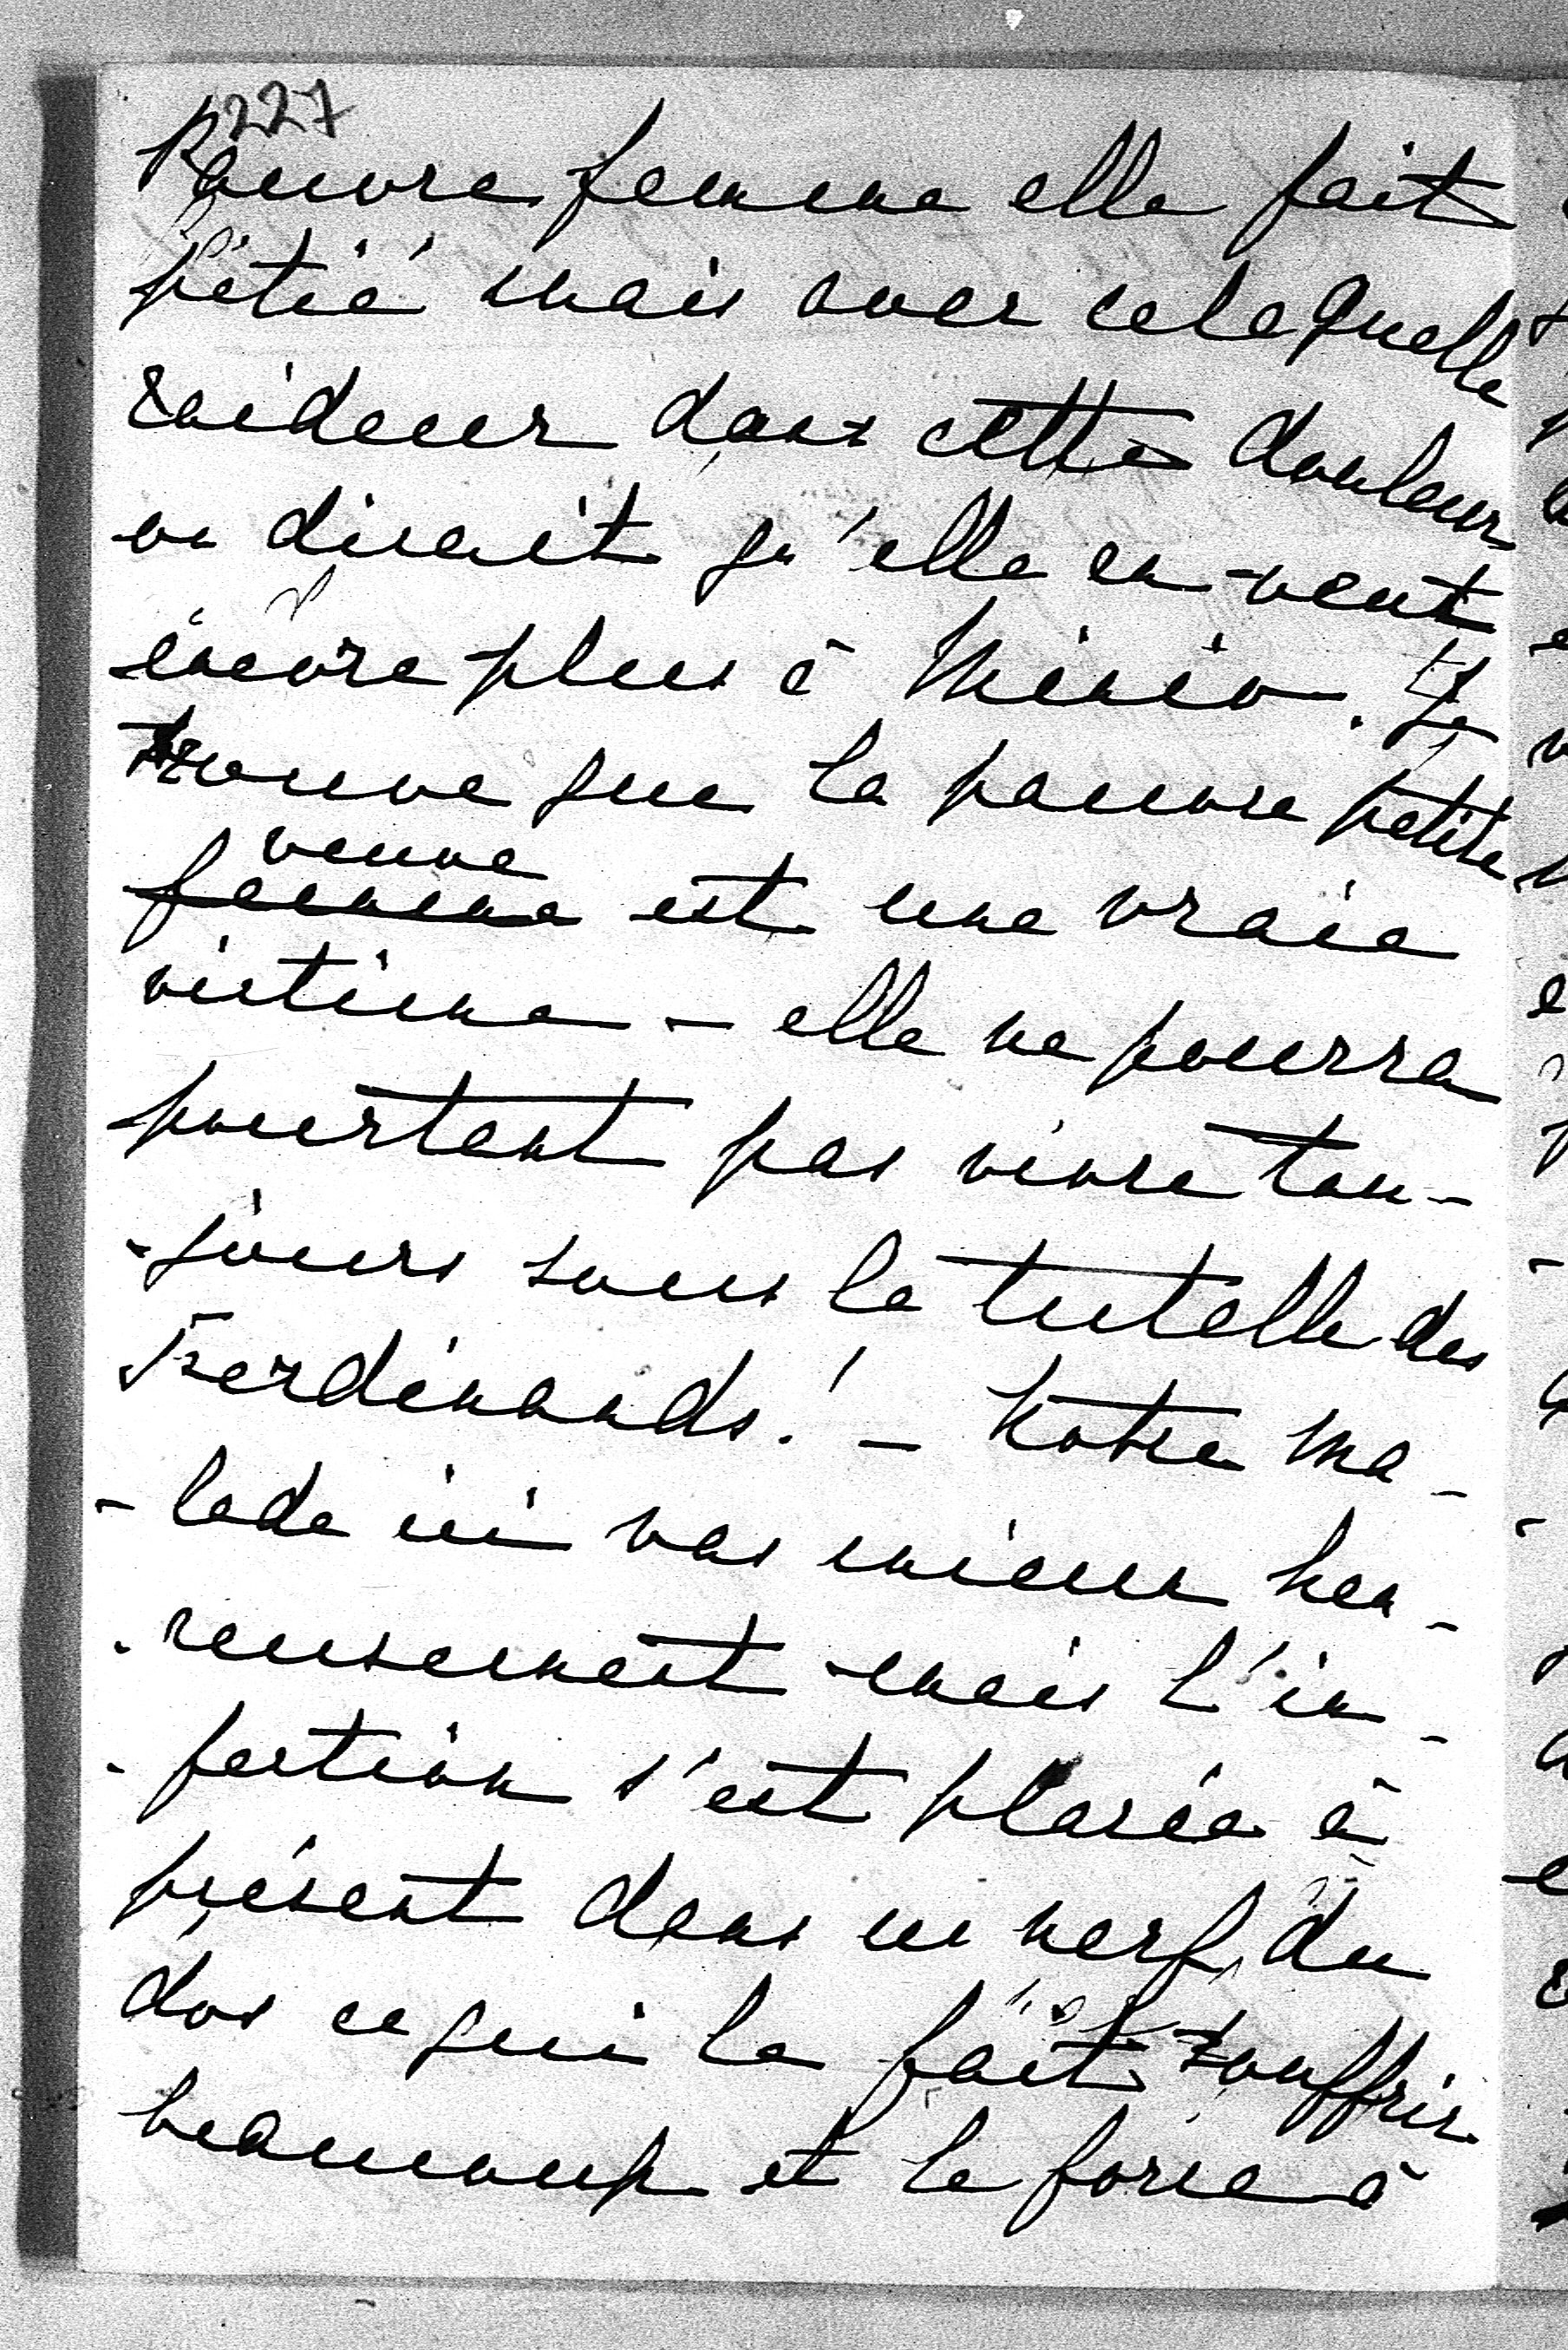 227
Pauvre femme elle fait
pitié mais avec cela quelle
raideur dans cette douleur
on dirait qu'elle en veut
encore plus à Minio. Je
trouve que la pauvre petite
veuve
femme est une vraie
victime – elle ne pourra
pourtant pas vivre tou-
-jours sous la tutelle des
Ferdinands! – Notre ma-
-lade ici vas mieux heu-
-reusement mais l'in-
-fection s'est placée à
présent dans un nerf du
dos ce qui la fait souffrir
beaucoup et la force à